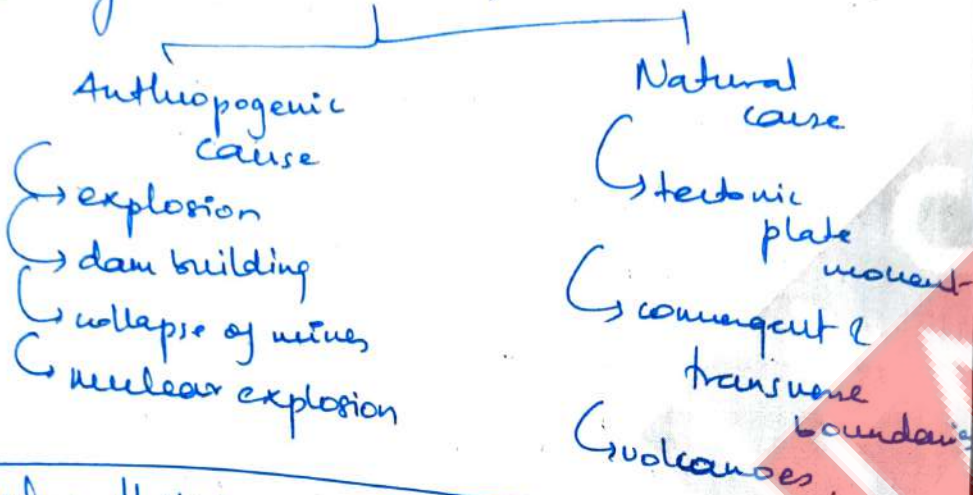 Anthropogenic
cause
explosion
dam building
collapse of mines
nuclear explosion
Natural
cause
tectonic
plate
movent
convergent &
transverse
boundaries
volcanoes